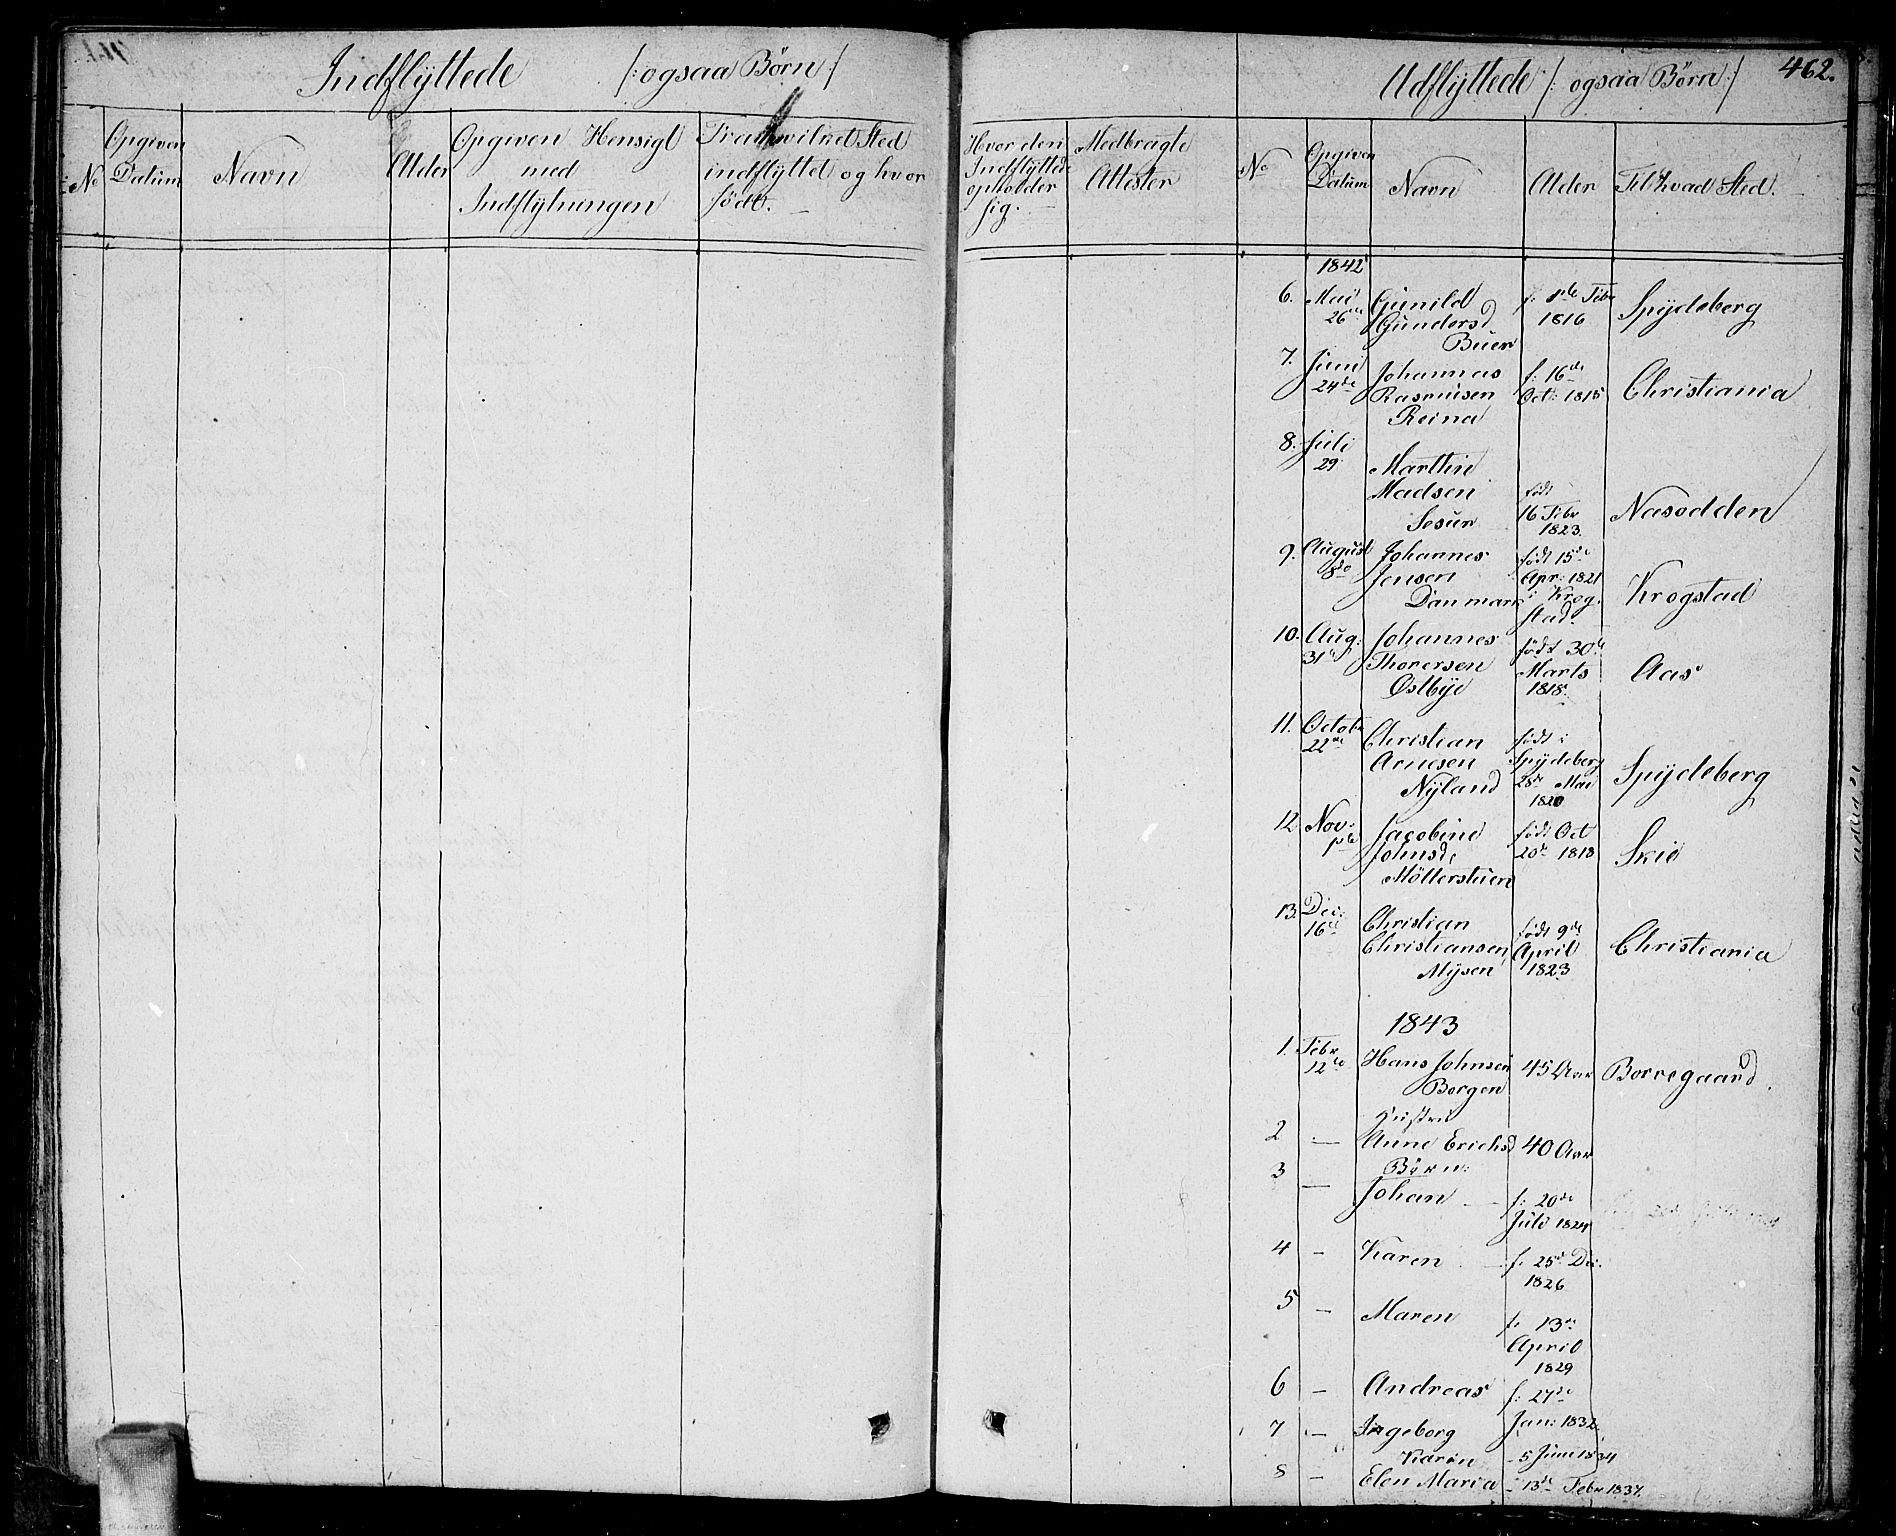 Indflyttede /: ogsaa Børn :/
No
Opgiven
Datum
Navn
Alder
Opgiven Hensigt
med
Indflytningen
Fra hvilket Sted
indflyttet og hvor
født.
Hvor den
Indflyttede
opholder
sig.
Medbragte
Attester
Udflyttede /: ogsaa Børn :/
462.
No
Opgiven
Datum
Navn
Alder
Til hvad Sted.
1842
6. Mai Gunild f: 1ste Febr Spydeberg
26de Gundersd 1816
Buer
7. Juni Johannes f: 16de Christiania
24de Rasmusen Oct: 1815
Reina
8. Juli
29 Marthin
Madsen født Nasodden
Sesun 16 Febr
1823.
9. August Johannes født 15de Krogstad
8de Jensen Apr: 1821
Danmark i Krog-
stad.
10. Aug: Johannes født 30te Aas
31te Thorersen Marts
Østbye 1818.
11. Octobr Christian født i Spydeberg
22de Arnesen Spydeberg
Nyland 28de Mai
1820
12 Nov. Jacobine født Oct Skie
1ste Johnsd. 20de 1818
Möllerstuen
13. Dec: Christian født 9de Christiania
16de Christiansen April
Mysen 1823
1843
1. Febr Hans Johnsen 45 Aar Borregaard.
12te Borgen
Hustru
2 — Anne Erichsd 40 Aar
3 Børn:
— Johan — f: 20de
Juli 1824
4 — Karen f. 25de Dec.
1826
5 — Maren f. 13de
April
1829
6 — Andreas f: 27de
7 — Ingeborg Jan: 1832
Karen 5 Juni 1834
8 — Elen Maria - 13de Febr 1837.